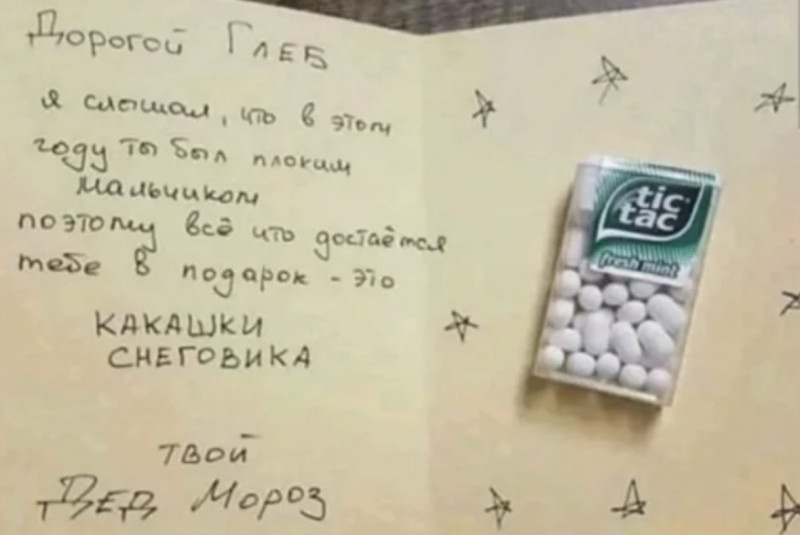 Дорогой Глеб
я слышал, что в этом
году ты был плохим
мальчиком
поэтому всё что достаётся
тебе в подарок - это
КАКАШКИ
СНЕГОВИКА
ТВОЙ
ДЕД Мороз
tic
tac
fresh mint